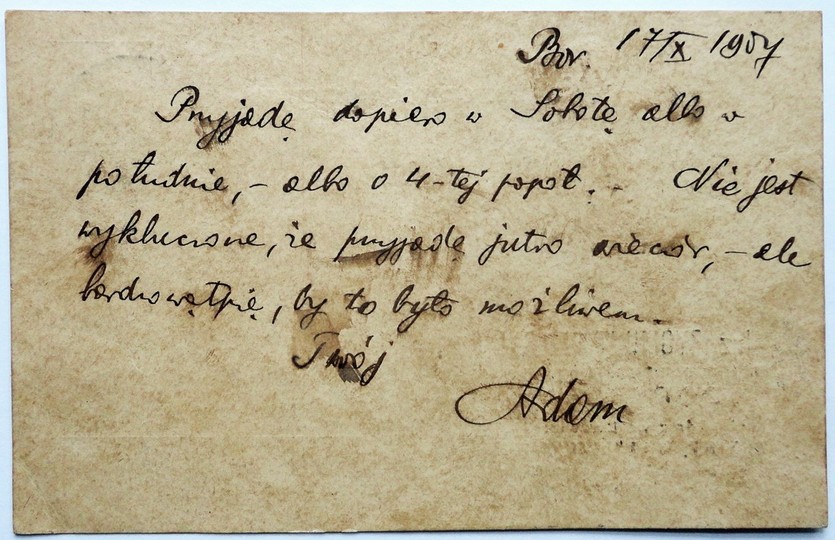 Bor. 17/X 1907
Przyjadę dopiero w Sobotę albo w
południe, – albo o 4-tej popoł. – Nie jest
wykluczone, że przyjadę jutro wieczór, – ale
bardzo wątpię, by to było możliwem.
Twój
Adam